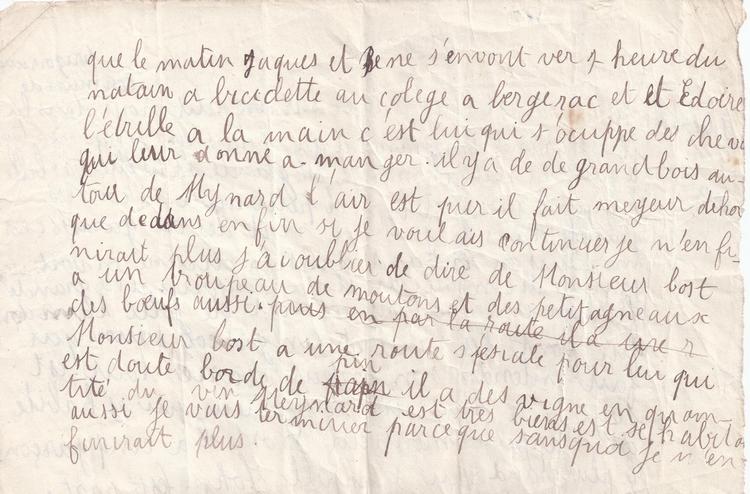 que le matin Jaques et Rene s'envont ver 7 heure du
natain a bicidette au colege a bergerac et et Edoire
l'étrille a la main c'est lui qui s'ocuppe des chevau
qui leur donne a manger. il y a de de grand bois au-
tour de Mynard l'air est pur il fait meyeur dehor
que dedans enfin si je voulais continuer je n'en fi-
nirait plus j'ai oublier de dire de Monsieur bost
a un troupeau de moutons et des petit agneaux
des bœufs aussi. puis en par la route il a une r
Monsieur bost a une route spesiale pour lui qui
est doute borde de pin il a des vigne en quan-
tité du vin Meynard est tres bien est se habit
aussi je vais terminer parceque sansquoi je n'en
finirait plus.